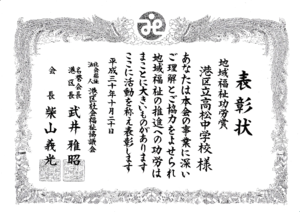 表彰状
地域福祉功労賞
港区立高松中学校 様
あなたは本会の事業に深い
ご理解とご協力をよせられ
地域福祉の推進への功労は
まことに大きいものがあります
ここに活動を称え表彰します
平成三十年十月二十日
社会福祉法人 港区社会福祉協議会
名誉会長
港区長 武井雅昭
会長 柴山義光